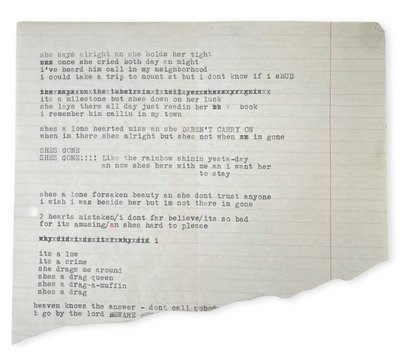 she says alright an she holds her tight
once she cried both day an night
i've heard him call in my neighborhood
i could take a trip to mount st but i dont know if i shUD
its a milestone but shes down on her luck
she lays there all day just readin her book
i remember him callin in my town
shes a lone hearted miss an she DAREN'T CARRY ON
when im there shes alright but shes not when im gone
SHES GONE
SHES GONE!!!! Like the rainbow shinin yesta-day
an now shes here with me an i want her
to stay
shes a lone forsaken beauty an she dont trust anyone
i wish i was beside her but im not there im gone
2 hearts mistaken/i dont far believe/its so bad
for its amusing/an shes hard to please
i
its a low
its a crime
she drags me around
shes a drag queen
shes a drag-a-muffin
shes a drag
heaven knows the answer - dont call nobod
i go by the lord BEWARE